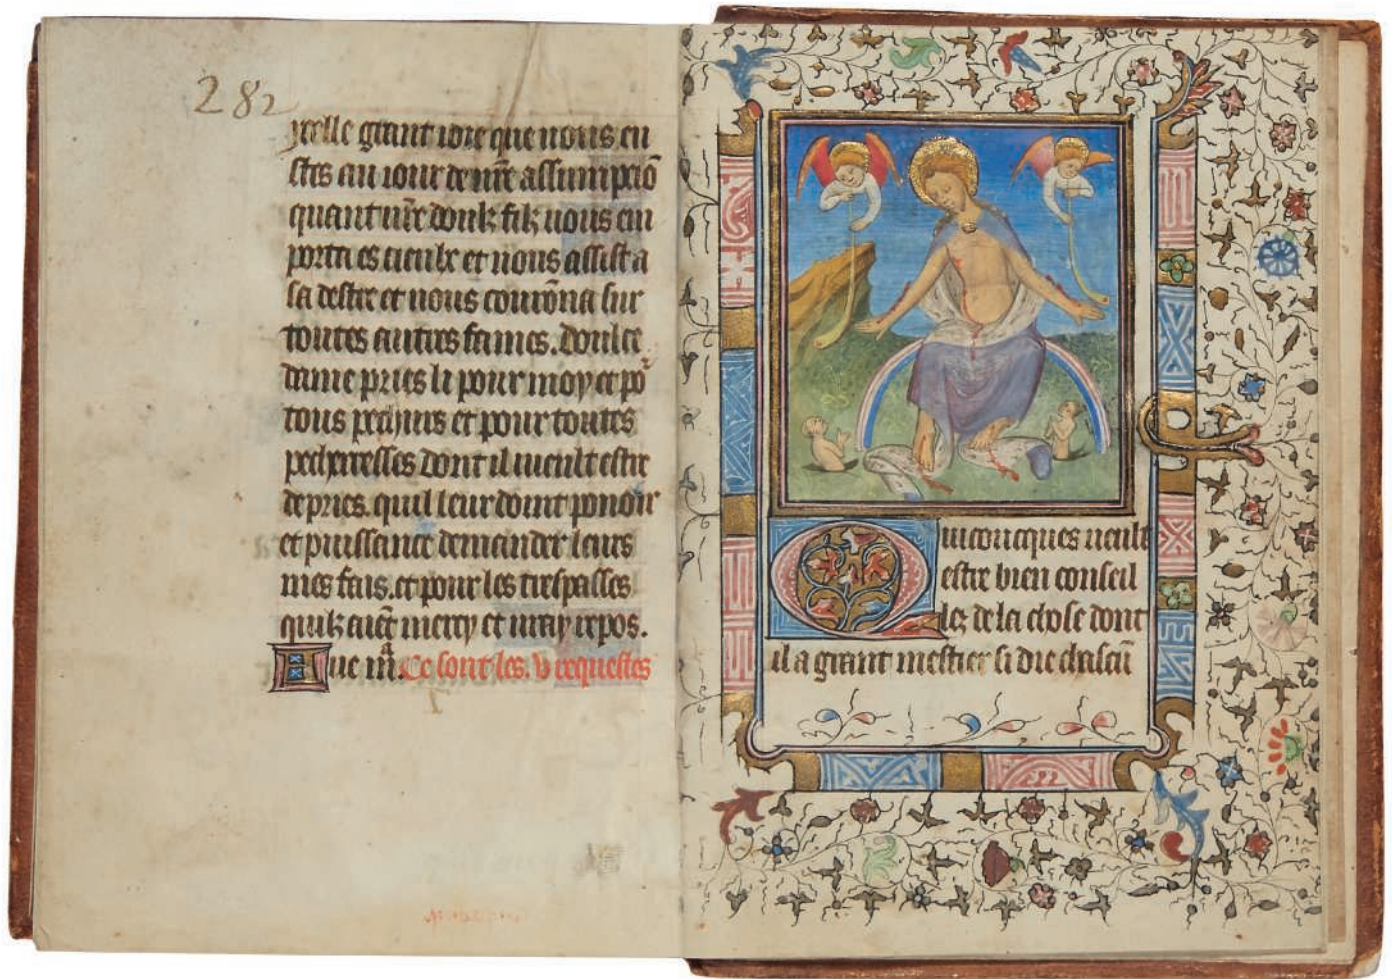 282
jcelle grant ioie que vous eu
stes au iour de vr̄e assumpciō
quant vr̄e doulz filz vous em
porta es cieulx et vous assist a
sa destre et vous courōna sur
toutes autres fames. Doulce
dame pries li pour moy et po᷑
tous pecheurs et pour toutes
pecheresses dont il vueult estre
depries. quil leur doint pouoir
et puissance demander leurs
mes fais. et pour les trespasses
quilz aiēt mercy et vray repos.
Aue m̄a. Ce sont les. v requestes
Quiconcques veult
estre bien conseil
lez de la chose dont
il a grant mestier si die chascū